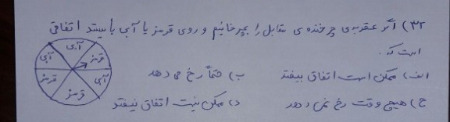 ۴۲) اگر عقربه‌ی چرخنده‌ی مقابل را بچرخانیم و روی قرمز یا آبی بایستد اتفاقی
است که:
الف) ممکن است اتفاق بیفتد
ب) حتماً رخ می دهد
ج) هیچ وقت رخ نمی دهد
د) ممکن نیست اتفاق بیفتد
آبی
قرمز
آبی
قرمز
قرمز
آبی